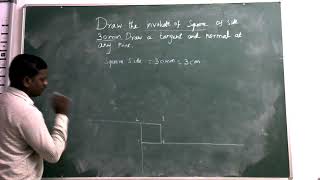 Draw the involute of square of side
30mm. Draw a tangent and normal at
any point.
Square side = 30mm = 3cm